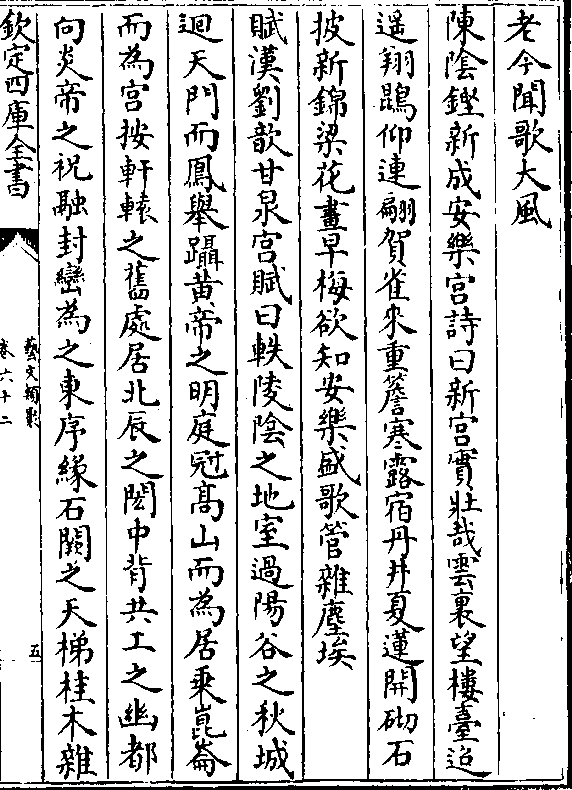 老今聞歌大風
陳陰鏗新成安樂宮詩曰新宮實壯哉雲裏望樓臺迢
遞翔鵾仰連翩賀雀來重簷寒露宿丹井夏蓮開砌石
披新錦梁花畫早梅欲知安樂盛歌管雜塵埃
賦漢劉歆甘泉宮賦曰軼陵陰之地室過陽谷之秋城
迴天門而鳳舉躡黃帝之明庭冠高山而為居乘崑崙
而為宮按軒轅之舊處居北辰之閎中背共工之幽都
向炎帝之祝融封巒為之東序緣石闕之天梯桂木雜
欽定四庫全書
藝文類聚
卷六十二
五